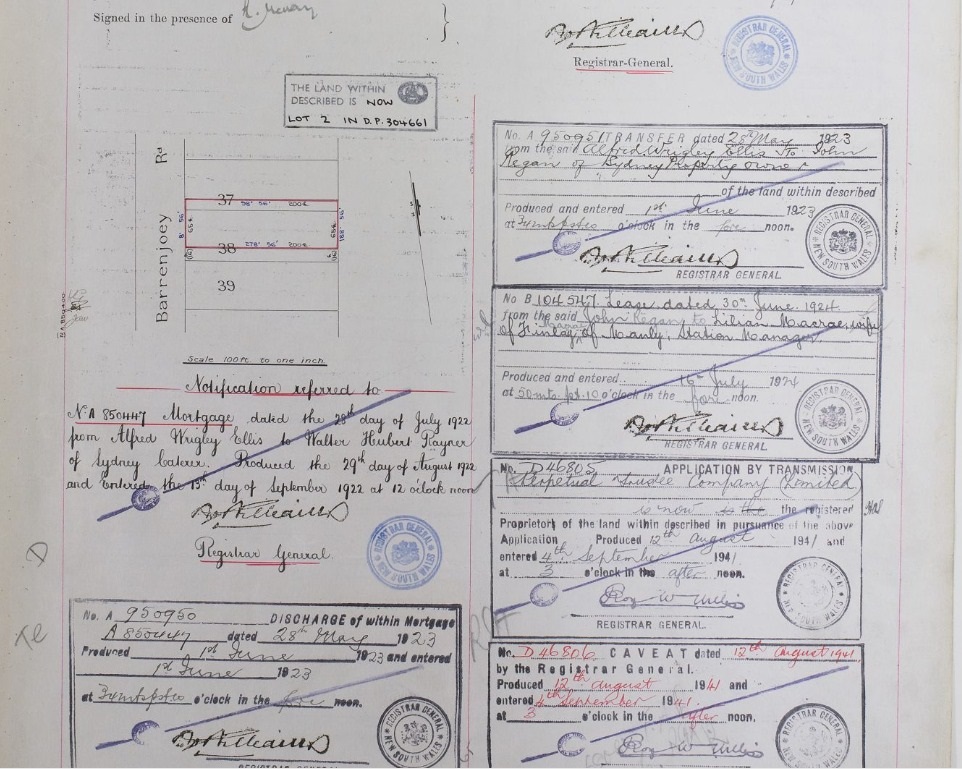 Signed in the presence of
Registrar-General.
REGISTRAR GENERAL
NEW SOUTH WALES
THE LAND WITHIN
DESCRIBED IS NOW
LOT 2 IN D.P. 304661
Barrenjoey Rd
37
38
39
Scale 100ft to one inch
Notification referred to
No. A 850447 Mortgage dated the 28th day of July 1922
from Alfred Wrigley Ellis to Walter Herbert Rayner
of Sydney Caterer. Produced the 29th day of August 1922
and entered the 13th day of September 1922 at 12 o'clock noon
Registrar General
REGISTRAR GENERAL
NEW SOUTH WALES
No. A 950950 DISCHARGE of within Mortgage
A 850447 dated 28th May 1923
Produced 1st June 1923 and entered
1st June 1923
at o'clock in the fore noon.
REGISTRAR GENERAL
NEW SOUTH WALES
REGISTRAR GENERAL
No. A 950951 TRANSFER dated 28th May 1923
from the said Alfred Wrigley Ellis to John
Regan of Sydney Property owner
of the land within described
Produced and entered 1st June 1923
at o'clock in the fore noon.
REGISTRAR GENERAL
REGISTRAR GENERAL
NEW SOUTH WALES
No B 104547 Lease dated 30th June 1924
from the said John Regan to Lilian Macrae wife
of Finlay of Manly, Station Manager
Produced and entered 16th July 1924
at 50 mts. pt. 10 o'clock in the fore noon.
REGISTRAR GENERAL
REGISTRAR GENERAL
NEW SOUTH WALES
No. D 46805 APPLICATION BY TRANSMISSION
Perpetual Trustee Company (Limited)
is now the registered
Proprietor of the land within described in pursuance of the above
Application Produced 12th August 1941 and
entered 4th September 1941
at 3 o'clock in the after noon.
Roy W Willis
REGISTRAR GENERAL
REGISTRAR GENERAL
No. D 46806 CAVEAT dated 12th August 1941
by the Registrar General.
Produced 12th August 1941 and
entered 4th September 1941
at 3 o'clock in the after noon.
Roy W Willis
REGISTRAR GENERAL